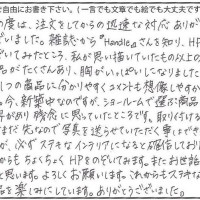 自由にお書き下さい。(一言でも文章でも絵でも大丈夫です
の度は、注文をしてからの迅速な対応ありが
ございました。雑誌から『Handle』さんを知り、HP
いてみたところ、私が思い描いていたもの以上の
品がたくさんあり、胸がいっぱいになりました
1つの商品に分かりやすくコメントも想像しやすか
。今、新築中なのですが、ショールームで選ぶ商品に
界があり残念に思っていたところです。取り付ける
まだ先なので写真を送らせていただく事はできま
が、必ずステキなインテリアになると確信しており
からもちょくちょくHPをのぞいてみます。またお世話
と思います。よろしくお願いします。これからもステキな
品を楽しみにしています。ありがとうございました。